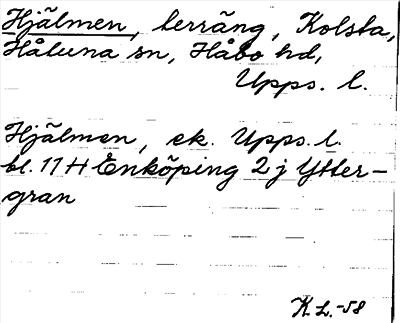 Hjälmen, terräng, Kolsta,
Håtuna sn, Håbo hd,
Upps. l.
Hjälmen, ek. Upps. l.
bl. 11 H Enköping 2 j Ytter-
gran
K L. -58